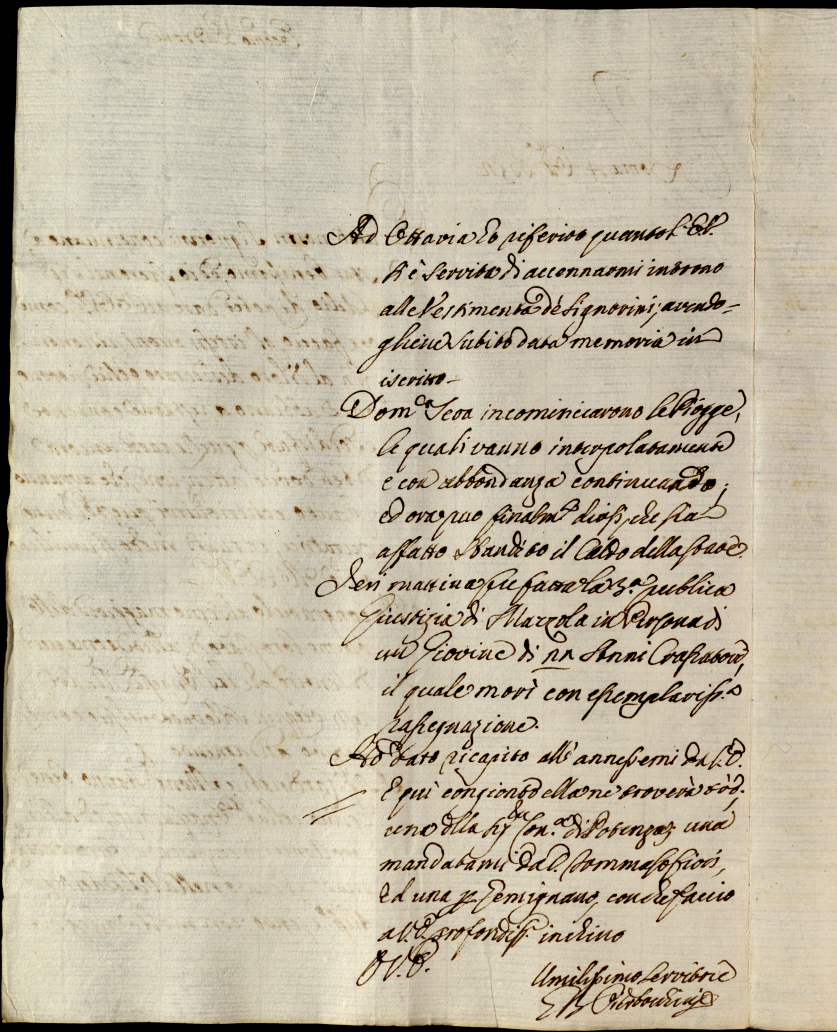 Ad Ottavia ho riferito quanto V. E.
si è servita di accennarmi intorno
alle Vestimenta de Signorini, avendo-
gliene subito data memoria in
iscritto-
Dom.ca sera incominciarono le Piogge,
le quali vanno interpolatamente
e con abbondanza continuando;
ed ora può finalm.te dirsi, che sia
affatto sbandito il Caldo della state.
Jeri mattina fu fatta la 3.a publica
Giustizia di Mazzola in Persona di
un Giovine di 22 Anni Grassatore,
il quale morì con esemplariss.a
rassegnazione.
Ho dato ricapito all' annessemi da V. E.
E qui congionto ella ne troverà
una della Sig.ra Con.a di Potenza, una
mandatami da D. Tommaso
Ed una p. Gemignano, con che faccio
a V. E. profondiss. inchino
D V. E.
Umilissimo Servitore